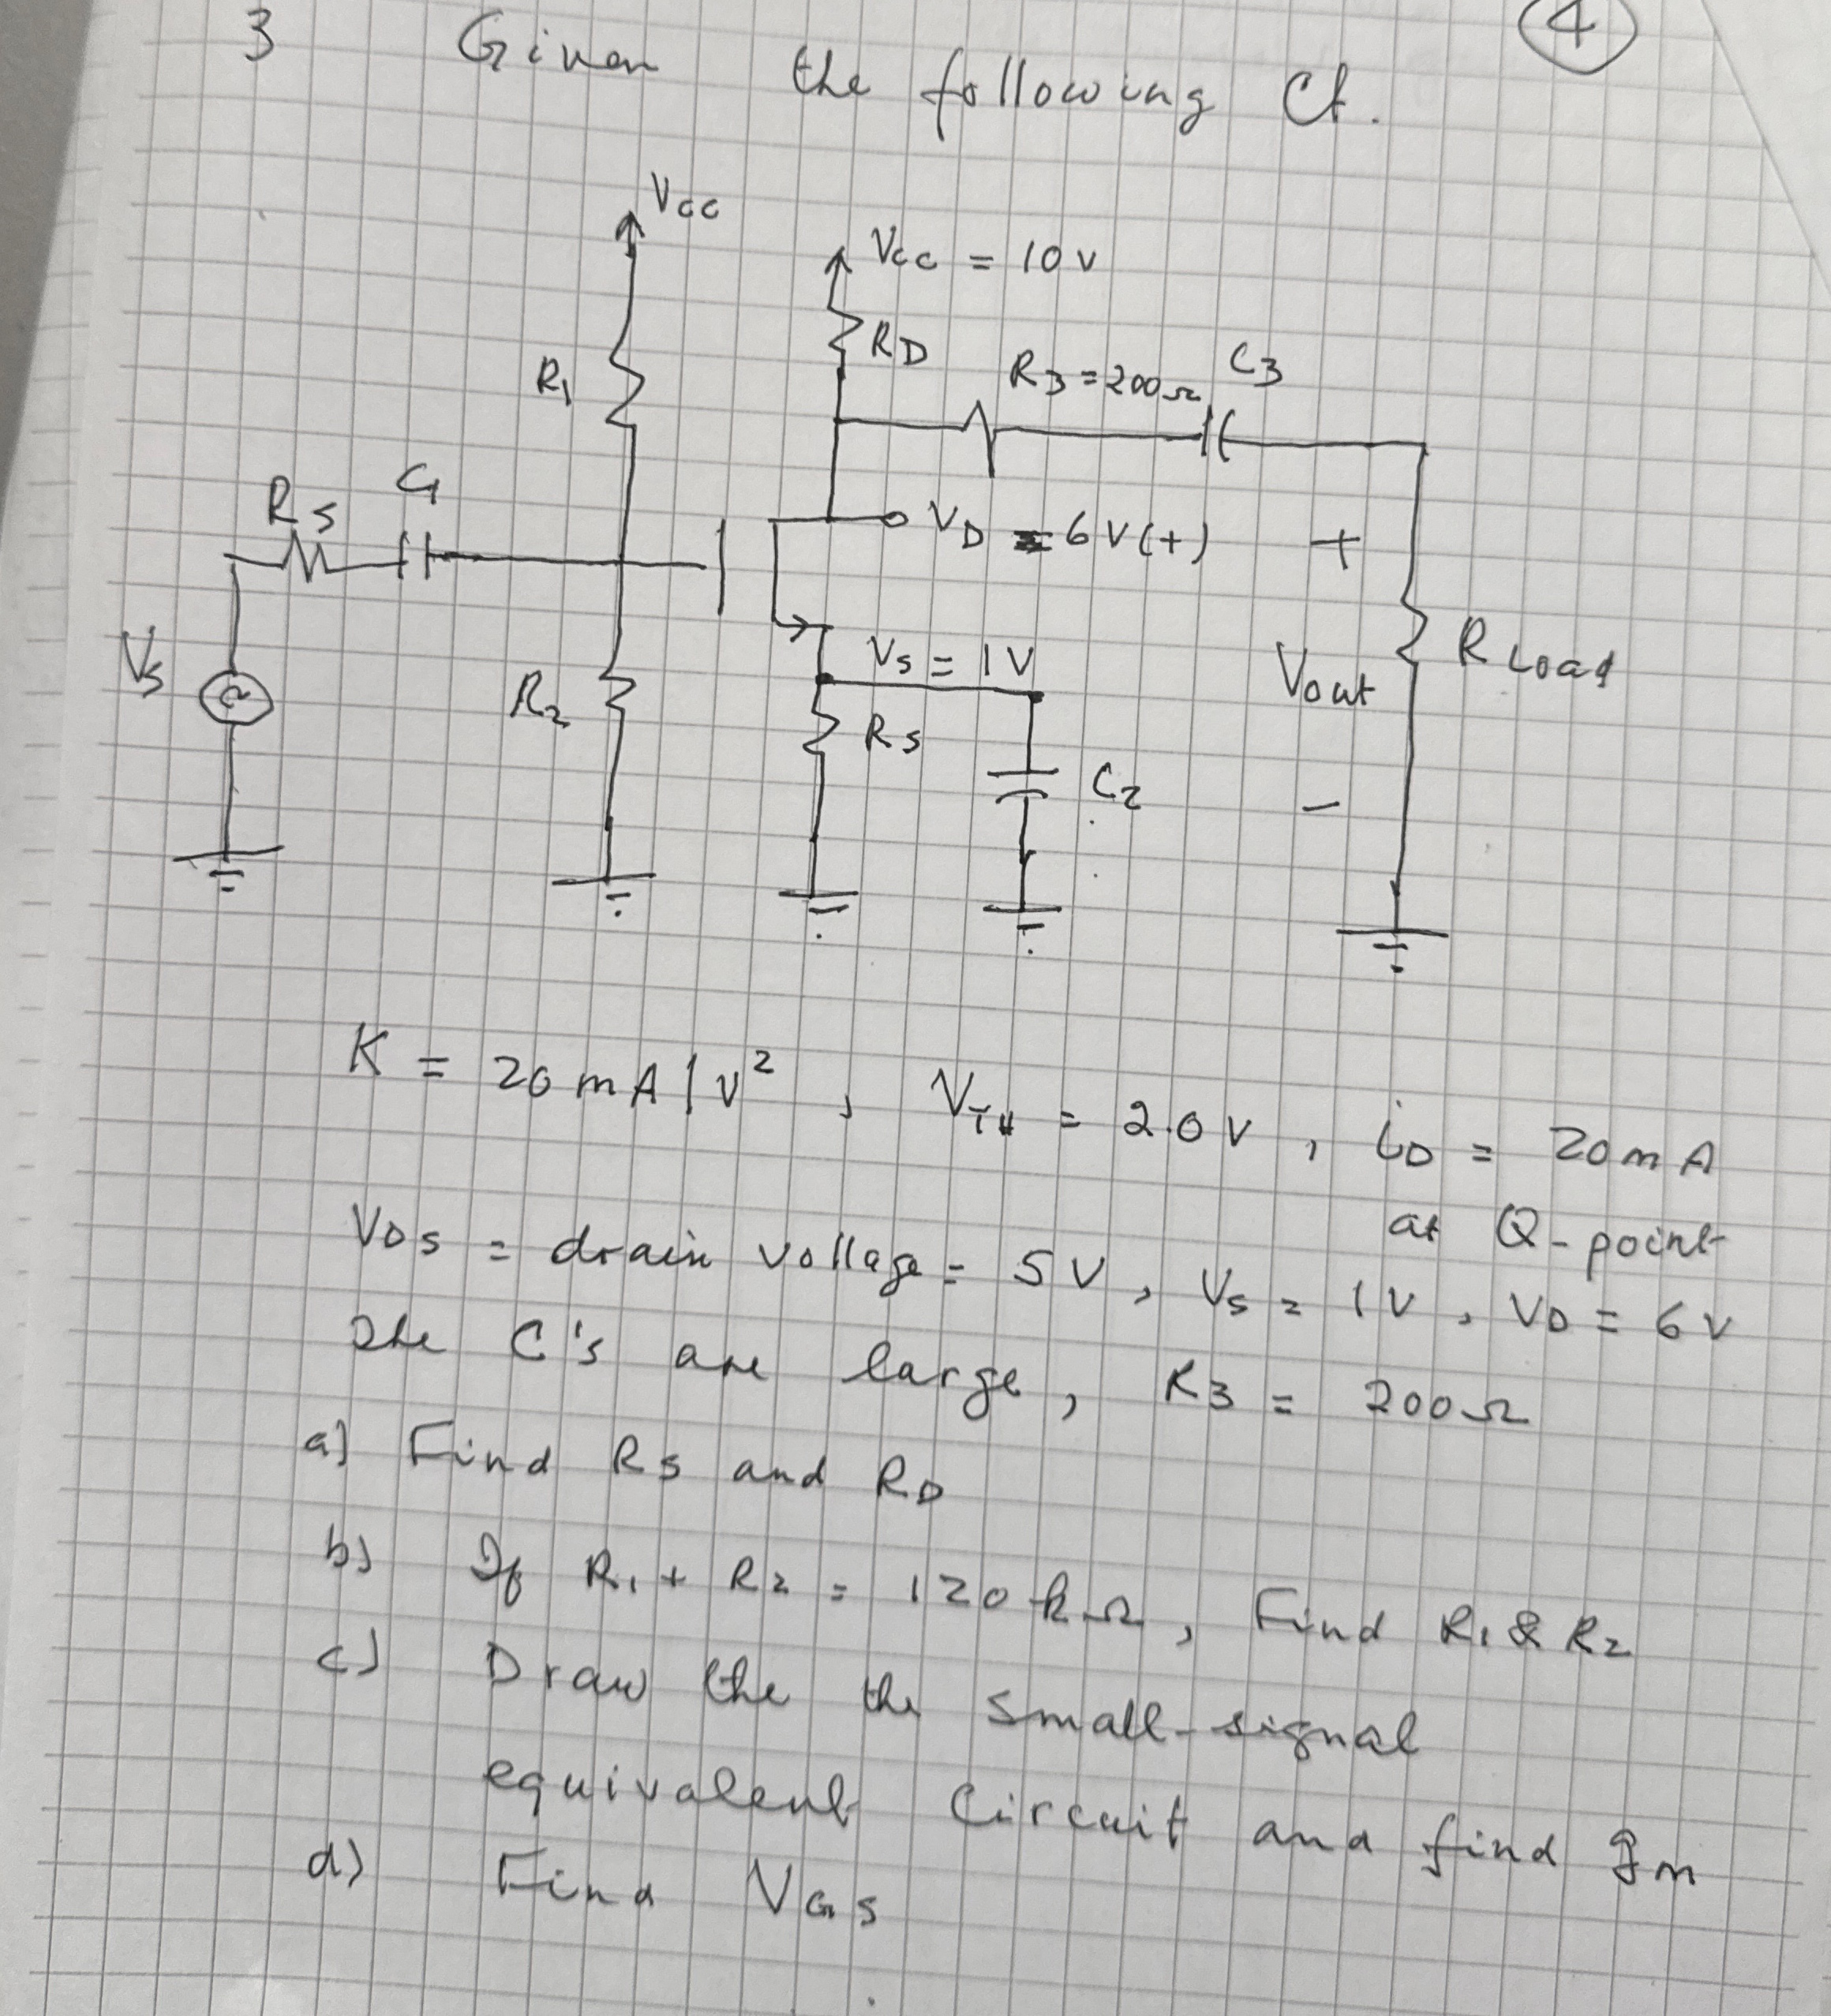 3 Given the following Ct.
4
Vcc
Vcc = 10 V
RD
R3 = 200Ω
C3
R1
RS
C1
VD = 6 V (+)
+
VS
R2
VS = 1 V
Vout
R Load
RS
C2
−
K = 20 mA/V², VTH = 2.0 V, iD = 20 mA
at Q-point
VDS = drain voltage = 5 V, VS = 1 V, VD = 6 V
The C's are large, R3 = 200Ω
a) Find RS and RD
b) If R1 + R2 = 120 kΩ, Find R1 & R2
c) Draw the the small-signal
equivalent Circuit and find gm
d) Find VGS